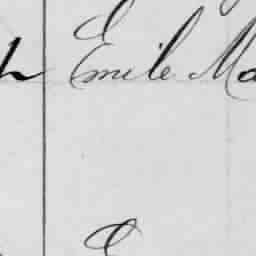 Emile Ma